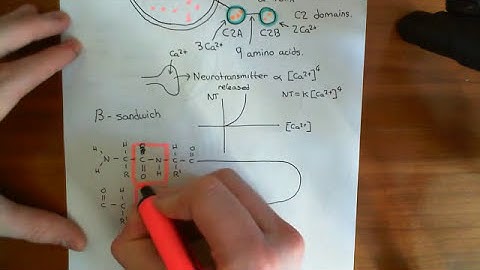 C2 domains.
C2A C2B
3Ca²⁺ 2Ca²⁺
9 amino acids.
Ca²⁺
Neurotransmitter ∝ [Ca²⁺]⁴
released
NT NT=K[Ca²⁺]⁴
[Ca²⁺]
β-sandwich
H O H
H N - C - C - N - C - C
H R O H R'
O H
C - C
R'